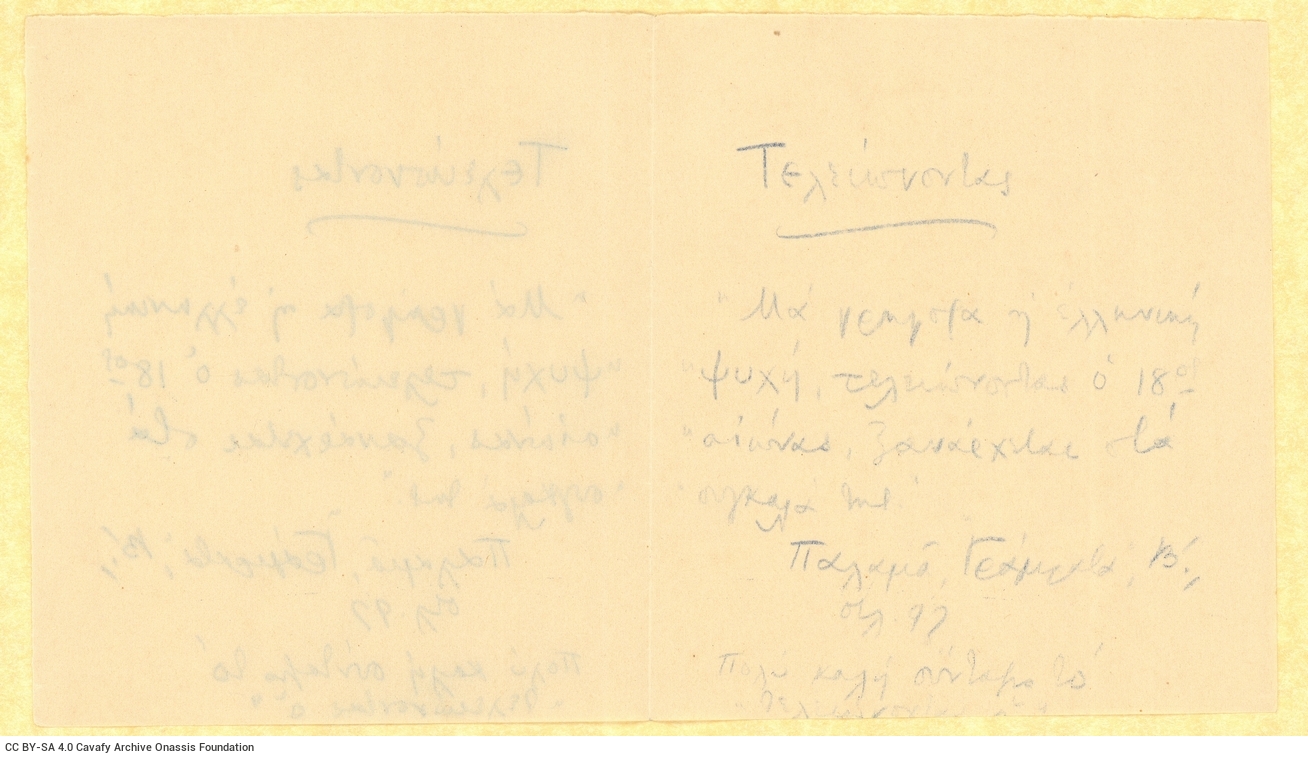 Τελειώνοντας
" Μά γρήγορα ἡ ἑλληνική
" ψυχή, τελειώνοντας ὁ 18ος
" αἰώνας, ξανάρχεται στά
" συγκαλά της."
Παλαμᾶ, Γράμματα, Β΄,
σελ. 97
Πολύ καλή σύνταξις τό
" Τελειώνοντας ὁ
CC BY-SA 4.0 Cavafy Archive Onassis Foundation